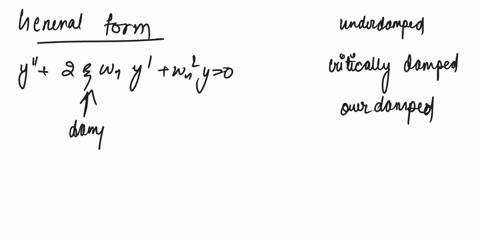 General form
y" + 2 ξ ωn y' + ωn² y = 0
damp
underdamped
critically damped
overdamped